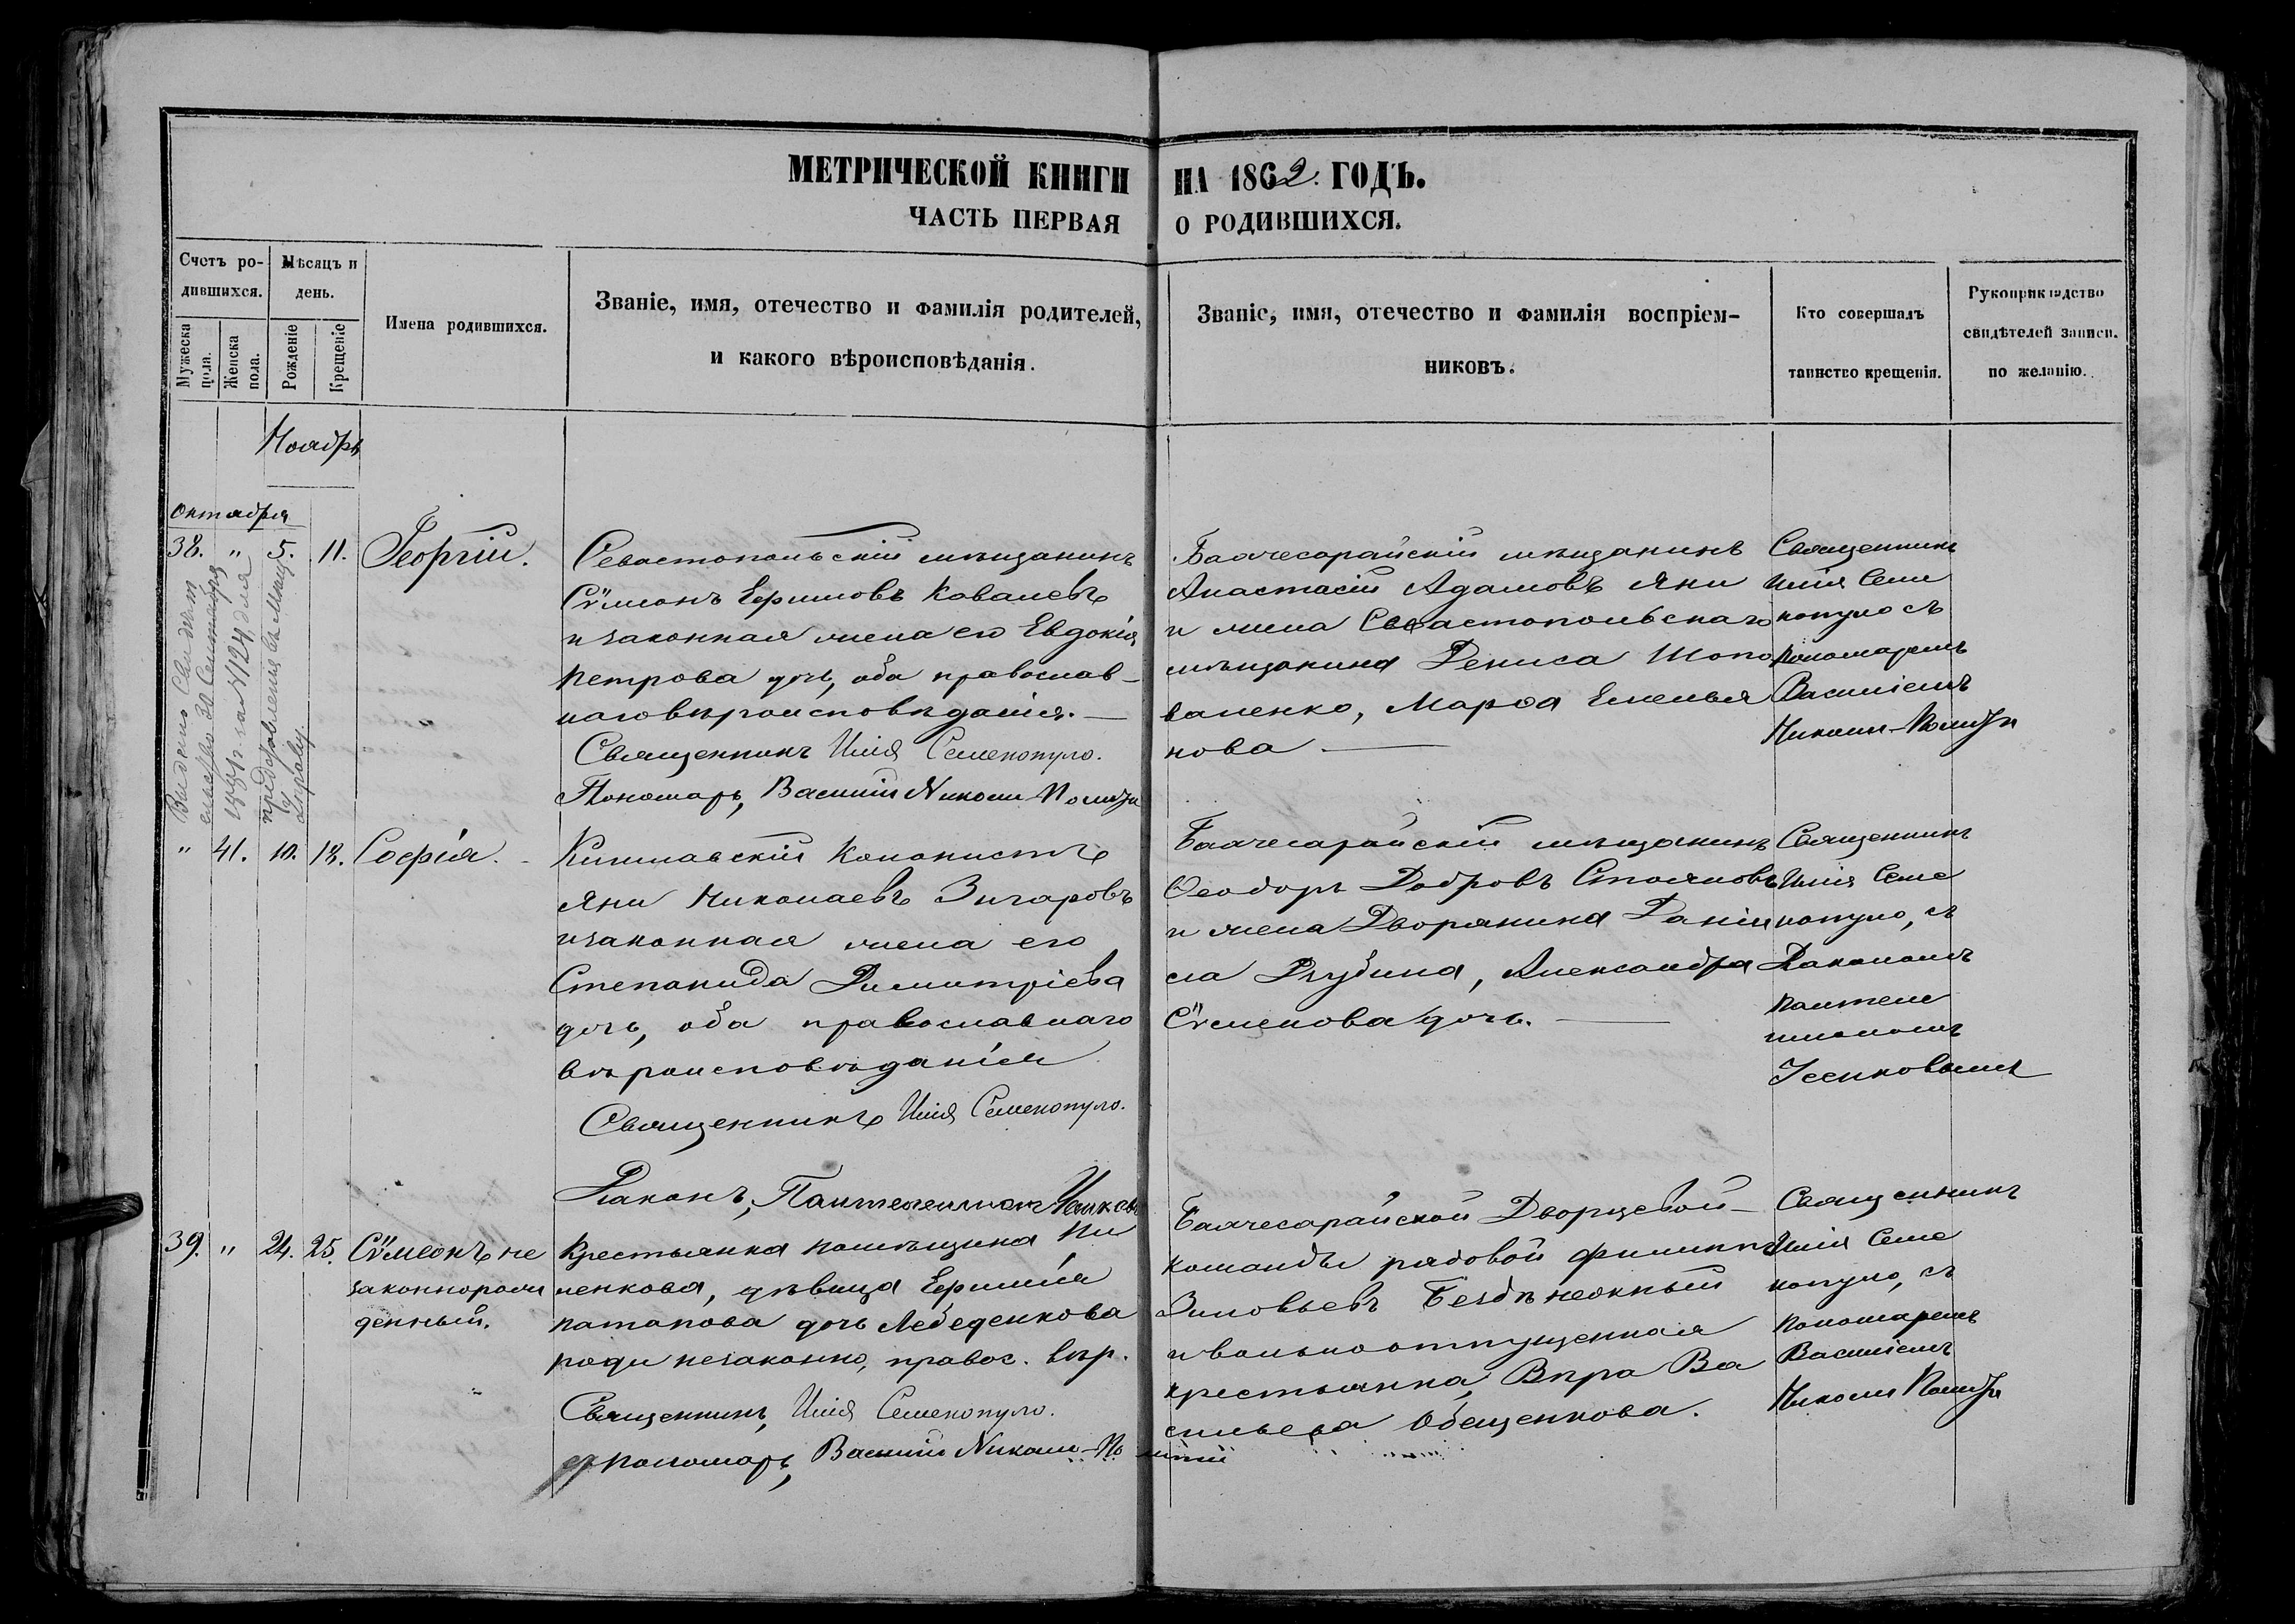 МЕТРИЧЕСКОЙ КНИГИ НА 1862. ГОДЪ.
ЧАСТЬ ПЕРВАЯ О РОДИВШИХСЯ.
Счетъ ро-
дившихся.
Мужеска
пола.
Женска
пола.
Мѣсяцъ и
день.
Рожденіе
Крещеніе
Имена родившихся.
Званіе, имя, отечество и фамилія родителей,
и какого вѣроисповѣданія.
Званіе, имя, отечество и фамилія воспріем-
никовъ.
Кто совершалъ
таинство крещенія.
Рукоприкладство
свидѣтелей записи.
по желанію.
Ноябрь
Октября
38. " 5. 11. Георгій.
Севастопольскій мѣщанинъ
Сѵмеонъ Ефимовъ Ковалевъ
и законная жена его Евдокія
Петрова дочь, оба православ-
наго вѣроисповѣданія.
Священникъ Илія Семенопуло.
Пономарь, Василій Николи-
Бахчесарайскій мѣщанинъ
Анастасій Адамовъ Яни
и жена Севастопольскаго
мѣщанина Дениса Шопо
валенко, Марѳа Емелья
нова
Священникъ
Илія Семе
нопуло съ
Пономаремъ
Василіемъ
Николи-
" 41. 10. 18. Софія.
Кишлавскій Колонистъ
Яни Николаевъ Зигаровъ
и законная жена его
Степанида Димитріева
дочь, оба православнаго
вѣроисповѣданія
Священникъ Илія Семенопуло.
Діаконъ, Пантелеимон
Бахчесарайскій мѣщанинъ
Ѳеодоръ Добровъ Стояновъ
и жена Дворянина Даніи
ла Александра
Сѵменова дочь.
Священникъ
Илія Семе
нопуло, съ
Діакономъ
Пантеле
имономъ
39. " 24. 25. Сѵмеонъ не
законнорож
денный.
Крестьянка помѣщика Пи
ненкова, дѣвица Ефимія
Потапова дочь Лебеденкова
роди незаконно, правос. вѣр.
Священникъ, Илія Семенопуло.
Пономарь, Василій Николи-
Бахчесарайской Дворцовой
команды рядовой Филиппъ
Зиновьевъ Безденежный
и вольноотпущенная
крестьянка, Вѣра Ва
сильева Обещенкова.
Священникъ
Илія Семе
нопуло, съ
Пономаремъ
Василіемъ
Николи